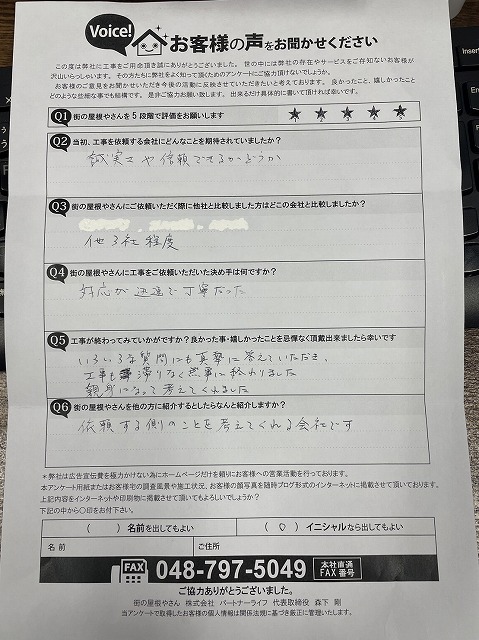 Voice! お客様の声をお聞かせください
この度は弊社に工事をご用命頂き誠にありがとうございました。 世の中には弊社の存在やサービスをご存知ないお客様が
沢山いらっしゃいます。 その方たちに弊社をよく知って頂くためのアンケートにご協力頂けないでしょうか。
お客様のご意見をお聞かせいただき今後の活動に反映させていただきたいと考えております。 良かったこと、嬉しかったこと
どのような些細な事でも結構です。 是非ご協力お願い致します。 出来るだけ具体的に書いて頂ければ幸いです。
Q1 街の屋根やさんを5段階で評価をお願いします ★ ★ ★ ★ ★
Q2 当初、工事を依頼する会社にどんなことを期待されていましたか?
誠実さや信頼できるかどうか
Q3 街の屋根やさんにご依頼いただく際に他社と比較しました方はどこの会社と比較しましたか?
他3社程度
Q4 街の屋根やさんに工事をご依頼いただいた決め手は何ですか?
対応が迅速で丁寧だった
Q5 工事が終わってみていかがですか?良かった事・嬉しかったことを忌憚なく頂戴出来ましたら幸いです
いろいろな質問にも真摯に答えていただき、
工事も滞りなく無事に終わりました
親身になって考えてくれました
Q6 街の屋根やさんを他の方に紹介するとしたらなんと紹介しますか?
依頼する側のことを考えてくれる会社です
*弊社は広告宣伝費を極力かけない為にホームページだけを頼りにお客様への営業活動を行っております。
本アンケート用紙またはお客様宅の調査風景や施工状況、お客様の顔写真を随時ブログ形式のインターネットに掲載させて頂いております。
上記内容をインターネットや印刷物に掲載させて頂いてもよろしいでしょうか?
下記の中から〇印をお付下さい。
( ) 名前を出してもよい ( ○ ) イニシャルなら出してもよい
名前 ご住所
FAX 048-797-5049 本社直通 FAX番号
ご協力ありがとうございました。
街の屋根やさん 株式会社 パートナーライフ 代表取締役 森下 剛
当アンケートで取得したお客様の個人情報は関係法規に基づき厳正に管理いたします。